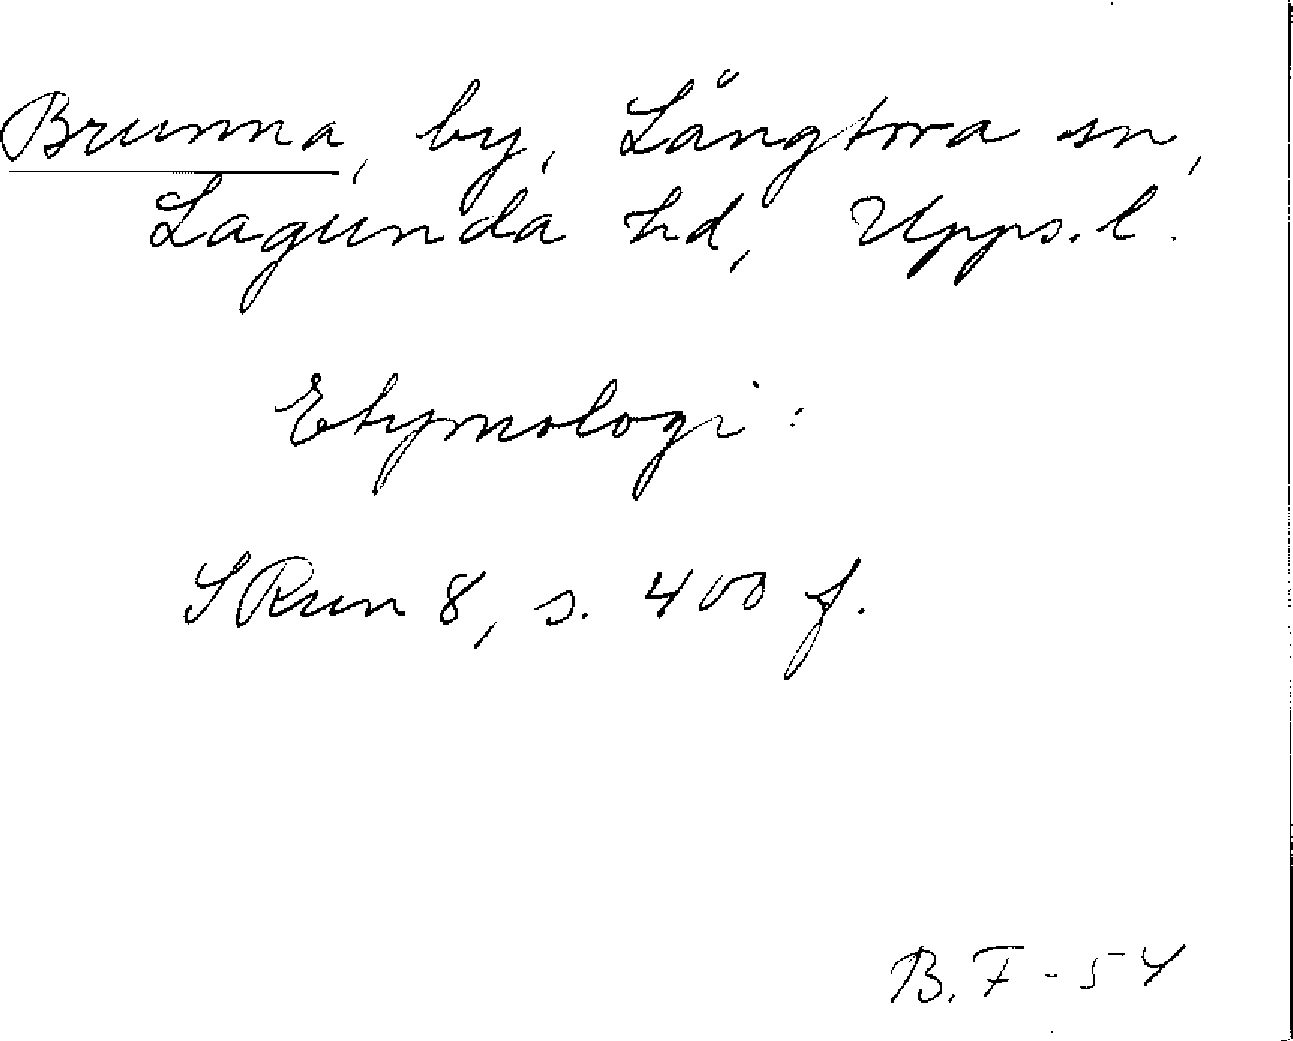 Brunna, by, Långtora sn,
Lagunda hd, Upps. l.
Etymologi:
SRun 8, s. 400 f.
B. F - 54